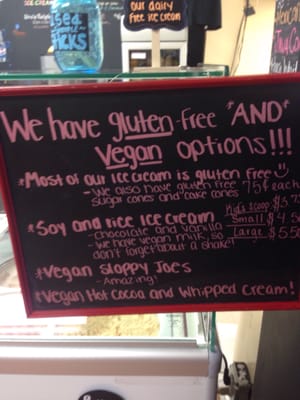 ICE CREAM
our dairy
free ice cream
We have gluten-free *AND*
vegan options!!!
*Most of our ice cream is gluten free
- We also have gluten free 75¢ each
sugar cones and cake cones
*Soy and rice ice cream
- chocolate and vanilla
- We have vegan milk, so
don't forget about a shake!
Kid's scoop
Small
Large
*Vegan Sloppy Joes
- Amazing!
*Vegan Hot Cocoa and Whipped Cream!